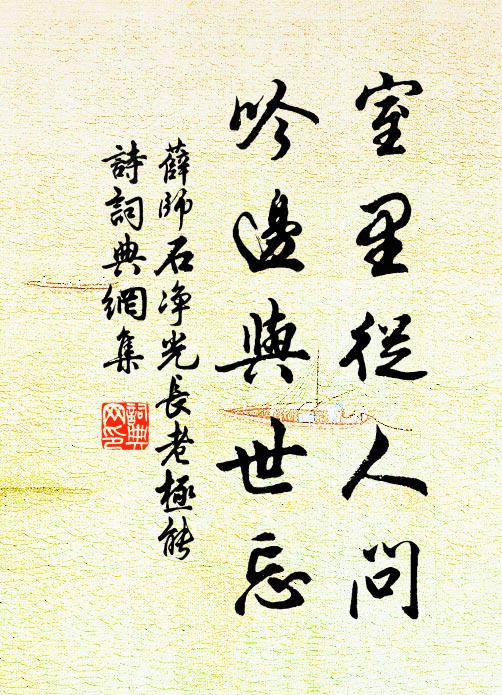 室里從人問
吟邊與世忘
薛師石净光長老極能
詩詞典網集
詞典
网印